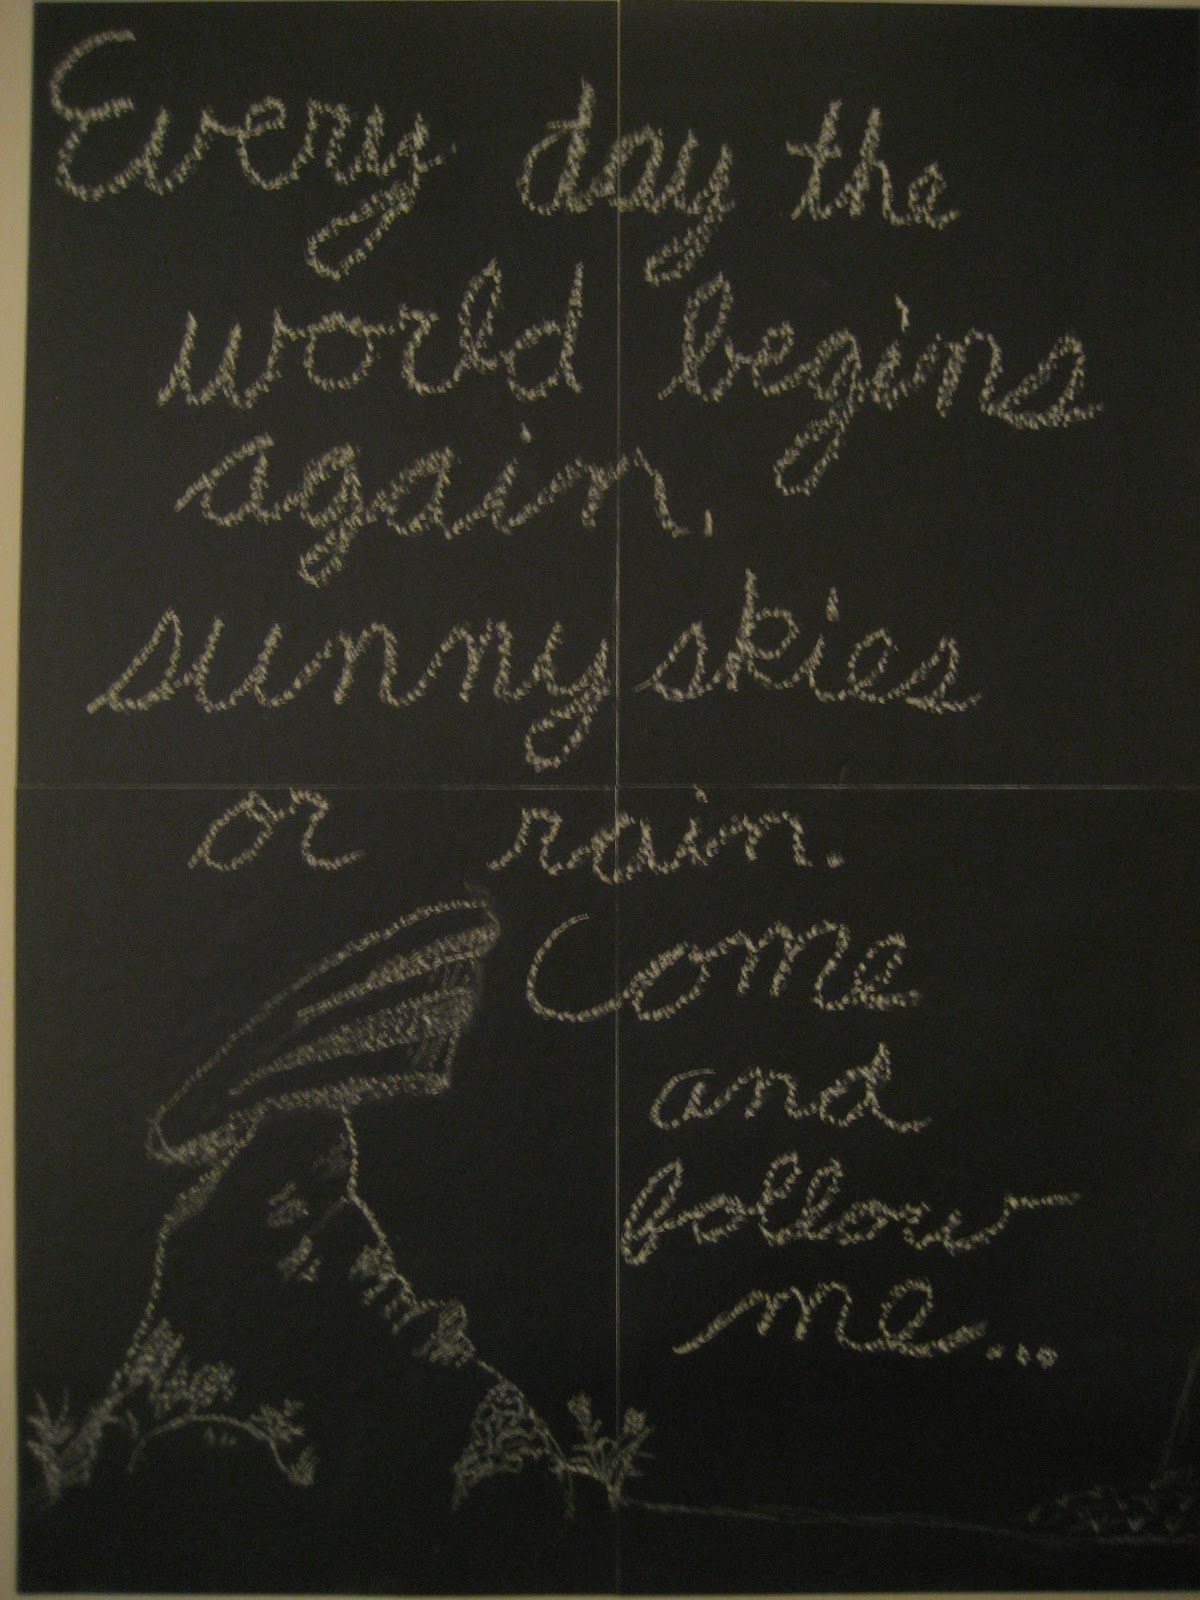 Every day the
world begins
again.
sunny skies
or rain.
Come
and
follow
me...